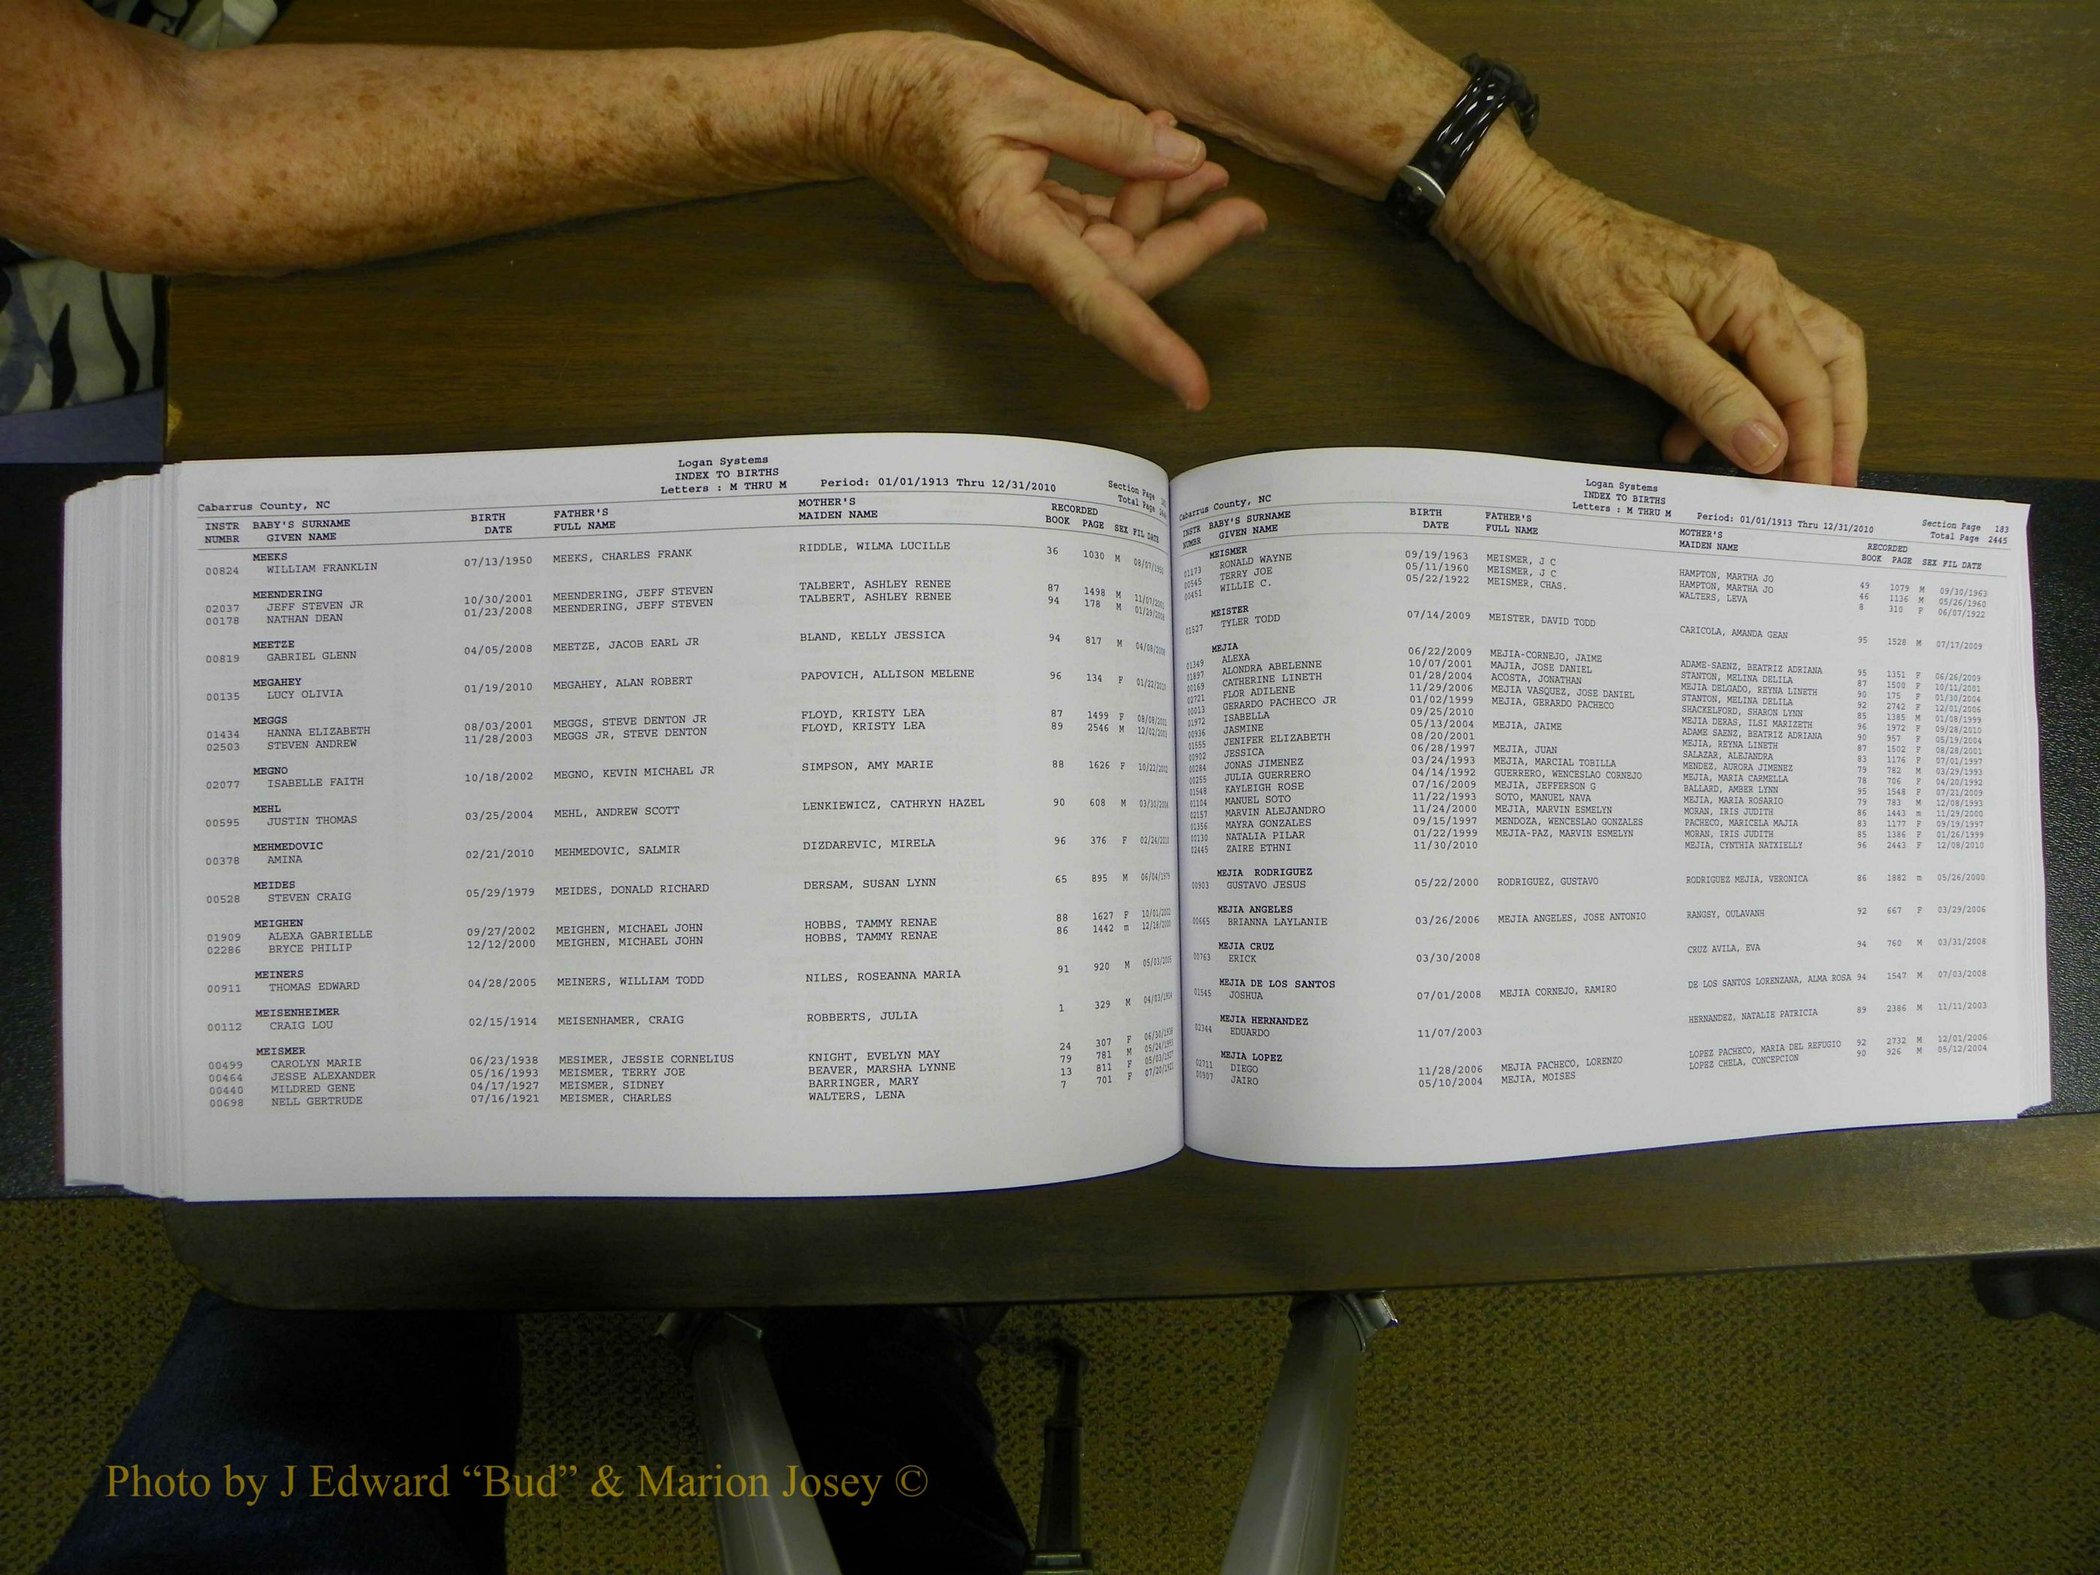 Logan Systems
INDEX TO BIRTHS
Cabarrus County, NC Letters : M THRU M Period: 01/01/1913 Thru 12/31/2010 Section Page
Total Page
INSTR BABY'S SURNAME BIRTH FATHER'S MOTHER'S RECORDED
NUMBR GIVEN NAME DATE FULL NAME MAIDEN NAME BOOK PAGE SEX FIL DATE
MEEKS
00824 WILLIAM FRANKLIN 07/13/1950 MEEKS, CHARLES FRANK RIDDLE, WILMA LUCILLE 36 1030 M 08/07/1950
MEENDERING
02037 JEFF STEVEN JR 10/30/2001 MEENDERING, JEFF STEVEN TALBERT, ASHLEY RENEE 87 1498 M 11/07/2001
00178 NATHAN DEAN 01/23/2008 MEENDERING, JEFF STEVEN TALBERT, ASHLEY RENEE 94 178 M 01/29/2008
MEETZE
00819 GABRIEL GLENN 04/05/2008 MEETZE, JACOB EARL JR BLAND, KELLY JESSICA 94 817 M 04/08/2008
MEGAHEY
00135 LUCY OLIVIA 01/19/2010 MEGAHEY, ALAN ROBERT PAPOVICH, ALLISON MELENE 96 134 F 01/22/2010
MEGGS
01434 HANNA ELIZABETH 08/03/2001 MEGGS, STEVE DENTON JR FLOYD, KRISTY LEA 87 1499 F 08/08/2001
02503 STEVEN ANDREW 11/28/2003 MEGGS JR, STEVE DENTON FLOYD, KRISTY LEA 89 2546 M 12/02/2003
MEGNO
02077 ISABELLE FAITH 10/18/2002 MEGNO, KEVIN MICHAEL JR SIMPSON, AMY MARIE 88 1626 F 10/23/2002
MEHL
00595 JUSTIN THOMAS 03/25/2004 MEHL, ANDREW SCOTT LENKIEWICZ, CATHRYN HAZEL 90 608 M 03/30/2004
MEHMEDOVIC
00378 AMINA 02/21/2010 MEHMEDOVIC, SALMIR DIZDAREVIC, MIRELA 96 376 F 02/24/2010
MEIDES
00528 STEVEN CRAIG 05/29/1979 MEIDES, DONALD RICHARD DERSAM, SUSAN LYNN 65 895 M 06/04/1979
MEIGHEN
01909 ALEXA GABRIELLE 09/27/2002 MEIGHEN, MICHAEL JOHN HOBBS, TAMMY RENAE 88 1627 F 10/01/2002
02286 BRYCE PHILIP 12/12/2000 MEIGHEN, MICHAEL JOHN HOBBS, TAMMY RENAE 86 1442 m 12/18/2000
MEINERS
00911 THOMAS EDWARD 04/28/2005 MEINERS, WILLIAM TODD NILES, ROSEANNA MARIA 91 920 M 05/03/2005
MEISENHEIMER
00112 CRAIG LOU 02/15/1914 MEISENHAMER, CRAIG ROBBERTS, JULIA 1 329 M 04/03/1914
MEISMER
00499 CAROLYN MARIE 06/23/1938 MESIMER, JESSIE CORNELIUS KNIGHT, EVELYN MAY 24 307 F 06/30/1938
00464 JESSE ALEXANDER 05/16/1993 MEISMER, TERRY JOE BEAVER, MARSHA LYNNE 79 781 M 05/24/1993
00440 MILDRED GENE 04/17/1927 MEISMER, SIDNEY BARRINGER, MARY 13 811 F 05/03/1927
00698 NELL GERTRUDE 07/16/1921 MEISMER, CHARLES WALTERS, LENA 7 701 F 07/20/1921
Logan Systems
INDEX TO BIRTHS
Cabarrus County, NC Letters : M THRU M Period: 01/01/1913 Thru 12/31/2010 Section Page 183
Total Page 2445
INSTR BABY'S SURNAME BIRTH FATHER'S MOTHER'S RECORDED
NUMBR GIVEN NAME DATE FULL NAME MAIDEN NAME BOOK PAGE SEX FIL DATE
MEISMER
01173 RONALD WAYNE 09/19/1963 MEISMER, J C HAMPTON, MARTHA JO 49 1079 M 09/30/1963
00545 TERRY JOE 05/11/1960 MEISMER, J C HAMPTON, MARTHA JO 46 1136 M 05/26/1960
00451 WILLIE C. 05/22/1922 MEISMER, CHAS. WALTERS, LEVA 8 310 F 06/07/1922
MEISTER
01527 TYLER TODD 07/14/2009 MEISTER, DAVID TODD CARICOLA, AMANDA GEAN 95 1528 M 07/17/2009
MEJIA
01349 ALEXA 06/22/2009 MEJIA-CORNEJO, JAIME ADAME-SAENZ, BEATRIZ ADRIANA 95 1351 F 06/26/2009
01897 ALONDRA ABELENNE 10/07/2001 MAJIA, JOSE DANIEL STANTON, MELINA DELILA 87 1500 F 10/11/2001
00169 CATHERINE LINETH 01/28/2004 ACOSTA, JONATHAN MEJIA DELGADO, REYNA LINETH 90 175 F 01/30/2004
02721 FLOR ADILENE 11/29/2006 MEJIA VASQUEZ, JOSE DANIEL STANTON, MELINA DELILA 92 2742 F 12/01/2006
00013 GERARDO PACHECO JR 01/02/1999 MEJIA, GERARDO PACHECO SHACKELFORD, SHARON LYNN 85 1385 M 01/08/1999
01972 ISABELLA 09/25/2010 MEJIA DERAS, ILSI MARIZETH 96 1972 F 09/28/2010
00936 JASMINE 05/13/2004 MEJIA, JAIME ADAME SAENZ, BEATRIZ ADRIANA 90 957 F 05/19/2004
01555 JENIFER ELIZABETH 08/20/2001 MEJIA, REYNA LINETH 87 1502 F 08/28/2001
00902 JESSICA 06/28/1997 MEJIA, JUAN SALAZAR, ALEJANDRA 83 1176 F 07/01/1997
00284 JONAS JIMENEZ 03/24/1993 MEJIA, MARCIAL TOBILLA MENDEZ, AURORA JIMENEZ 79 782 M 03/29/1993
00255 JULIA GUERRERO 04/14/1992 GUERRERO, WENCESLAO CORNEJO MEJIA, MARIA CARMELLA 78 706 F 04/20/1992
01548 KAYLEIGH ROSE 07/16/2009 MEJIA, JEFFERSON G BALLARD, AMBER LYNN 95 1548 F 07/21/2009
01104 MANUEL SOTO 11/22/1993 SOTO, MANUEL NAVA MEJIA, MARIA ROSARIO 79 783 M 12/08/1993
02157 MARVIN ALEJANDRO 11/24/2000 MEJIA, MARVIN ESMELYN MORAN, IRIS JUDITH 86 1443 m 11/29/2000
01356 MAYRA GONZALES 09/15/1997 MENDOZA, WENCESLAO GONZALES PACHECO, MARICELA MAJIA 83 1177 F 09/19/1997
00130 NATALIA PILAR 01/22/1999 MEJIA-PAZ, MARVIN ESMELYN MORAN, IRIS JUDITH 85 1386 F 01/26/1999
02445 ZAIRE ETHNI 11/30/2010 MEJIA, CYNTHIA NATXIELLY 96 2443 F 12/08/2010
MEJIA RODRIGUEZ
00903 GUSTAVO JESUS 05/22/2000 RODRIGUEZ, GUSTAVO RODRIGUEZ MEJIA, VERONICA 86 1882 m 05/26/2000
MEJIA ANGELES
00665 BRIANNA LAYLANIE 03/26/2006 MEJIA ANGELES, JOSE ANTONIO RANGSY, OULAVANH 92 667 F 03/29/2006
MEJIA CRUZ
00763 ERICK 03/30/2008 CRUZ AVILA, EVA 94 760 M 03/31/2008
MEJIA DE LOS SANTOS
01545 JOSHUA 07/01/2008 MEJIA CORNEJO, RAMIRO DE LOS SANTOS LORENZANA, ALMA ROSA 94 1547 M 07/03/2008
MEJIA HERNANDEZ
02344 EDUARDO 11/07/2003 HERNANDEZ, NATALIE PATRICIA 89 2386 M 11/11/2003
MEJIA LOPEZ
02711 DIEGO 11/28/2006 MEJIA PACHECO, LORENZO LOPEZ PACHECO, MARIA DEL REFUGIO 92 2732 M 12/01/2006
00907 JAIRO 05/10/2004 MEJIA, MOISES LOPEZ CHELA, CONCEPCION 90 926 M 05/12/2004
Photo by J Edward “Bud” & Marion Josey ©